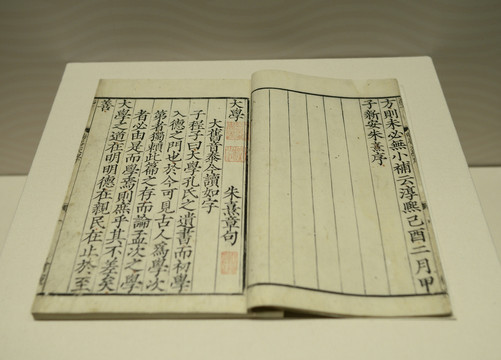 方則未必無小補云淳熙己酉二月甲
子新安朱熹序
大學
朱熹章句
大舊音泰今讀如字
子程子曰大學孔氏之遺書而初學
入德之門也於今可見古人爲學次
第者獨賴此篇之存而論孟次之學
者必由是而學焉則庶乎其不差矣
大學之道在明明德在親民在止於至
善